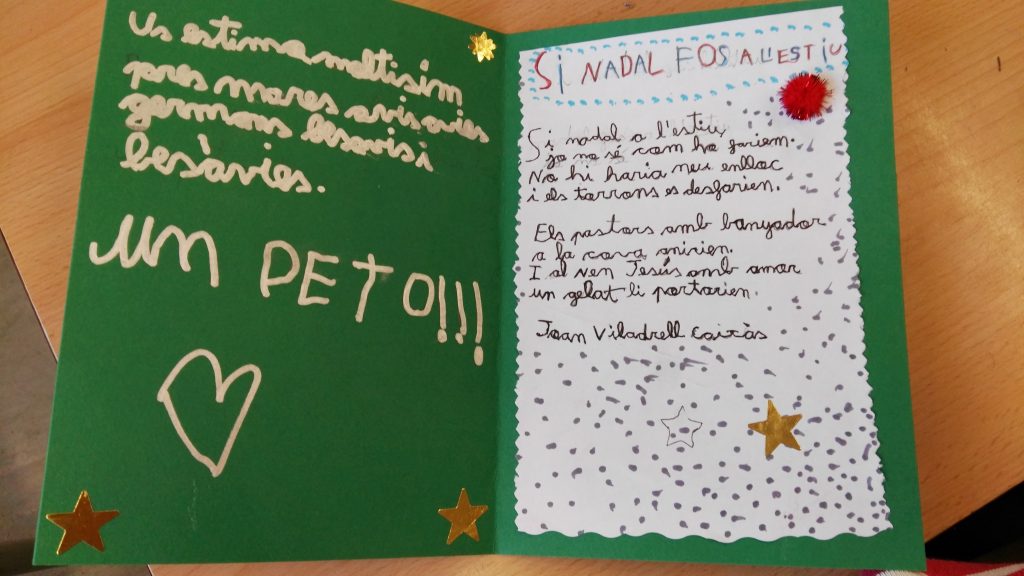 Us estima moltisim
pares mares avis avies
germans besavis i
besàvies.
UN PETO!!!
SI NADAL FOS A L'ESTIU
Si nadal a l'estiu,
ja no sé com ho fariem.
No hi haria neu enlloc
i els torrons es desfarien.
Els pastors amb banyador
a la cova anirien.
I al nen Jesús amb amor
un gelat li portarien.
Joan Viladrell Caixàs